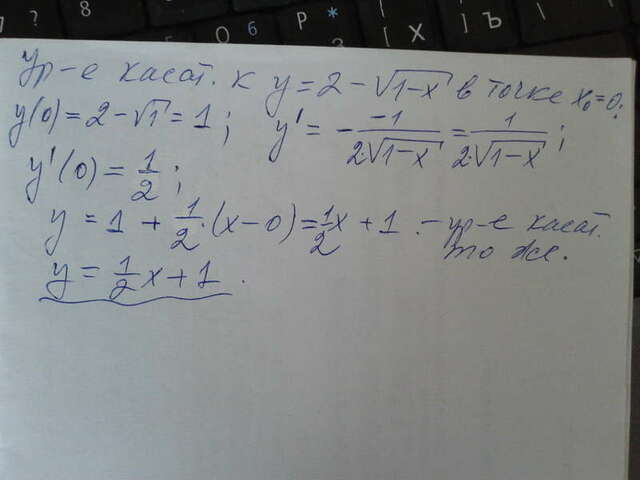 7 ? 8 О 6 Р * [ Х ] Ъ
Ур-е касат. к y = 2 - √(1-x) в точке x₀=0:
y(0) = 2 - √1 = 1; y' = - -1/(2·√(1-x)) = 1/(2·√(1-x));
y'(0) = 1/2;
y = 1 + 1/2·(x-0) = 1/2x + 1. - ур-е касат.
то же.
y = 1/2x + 1.